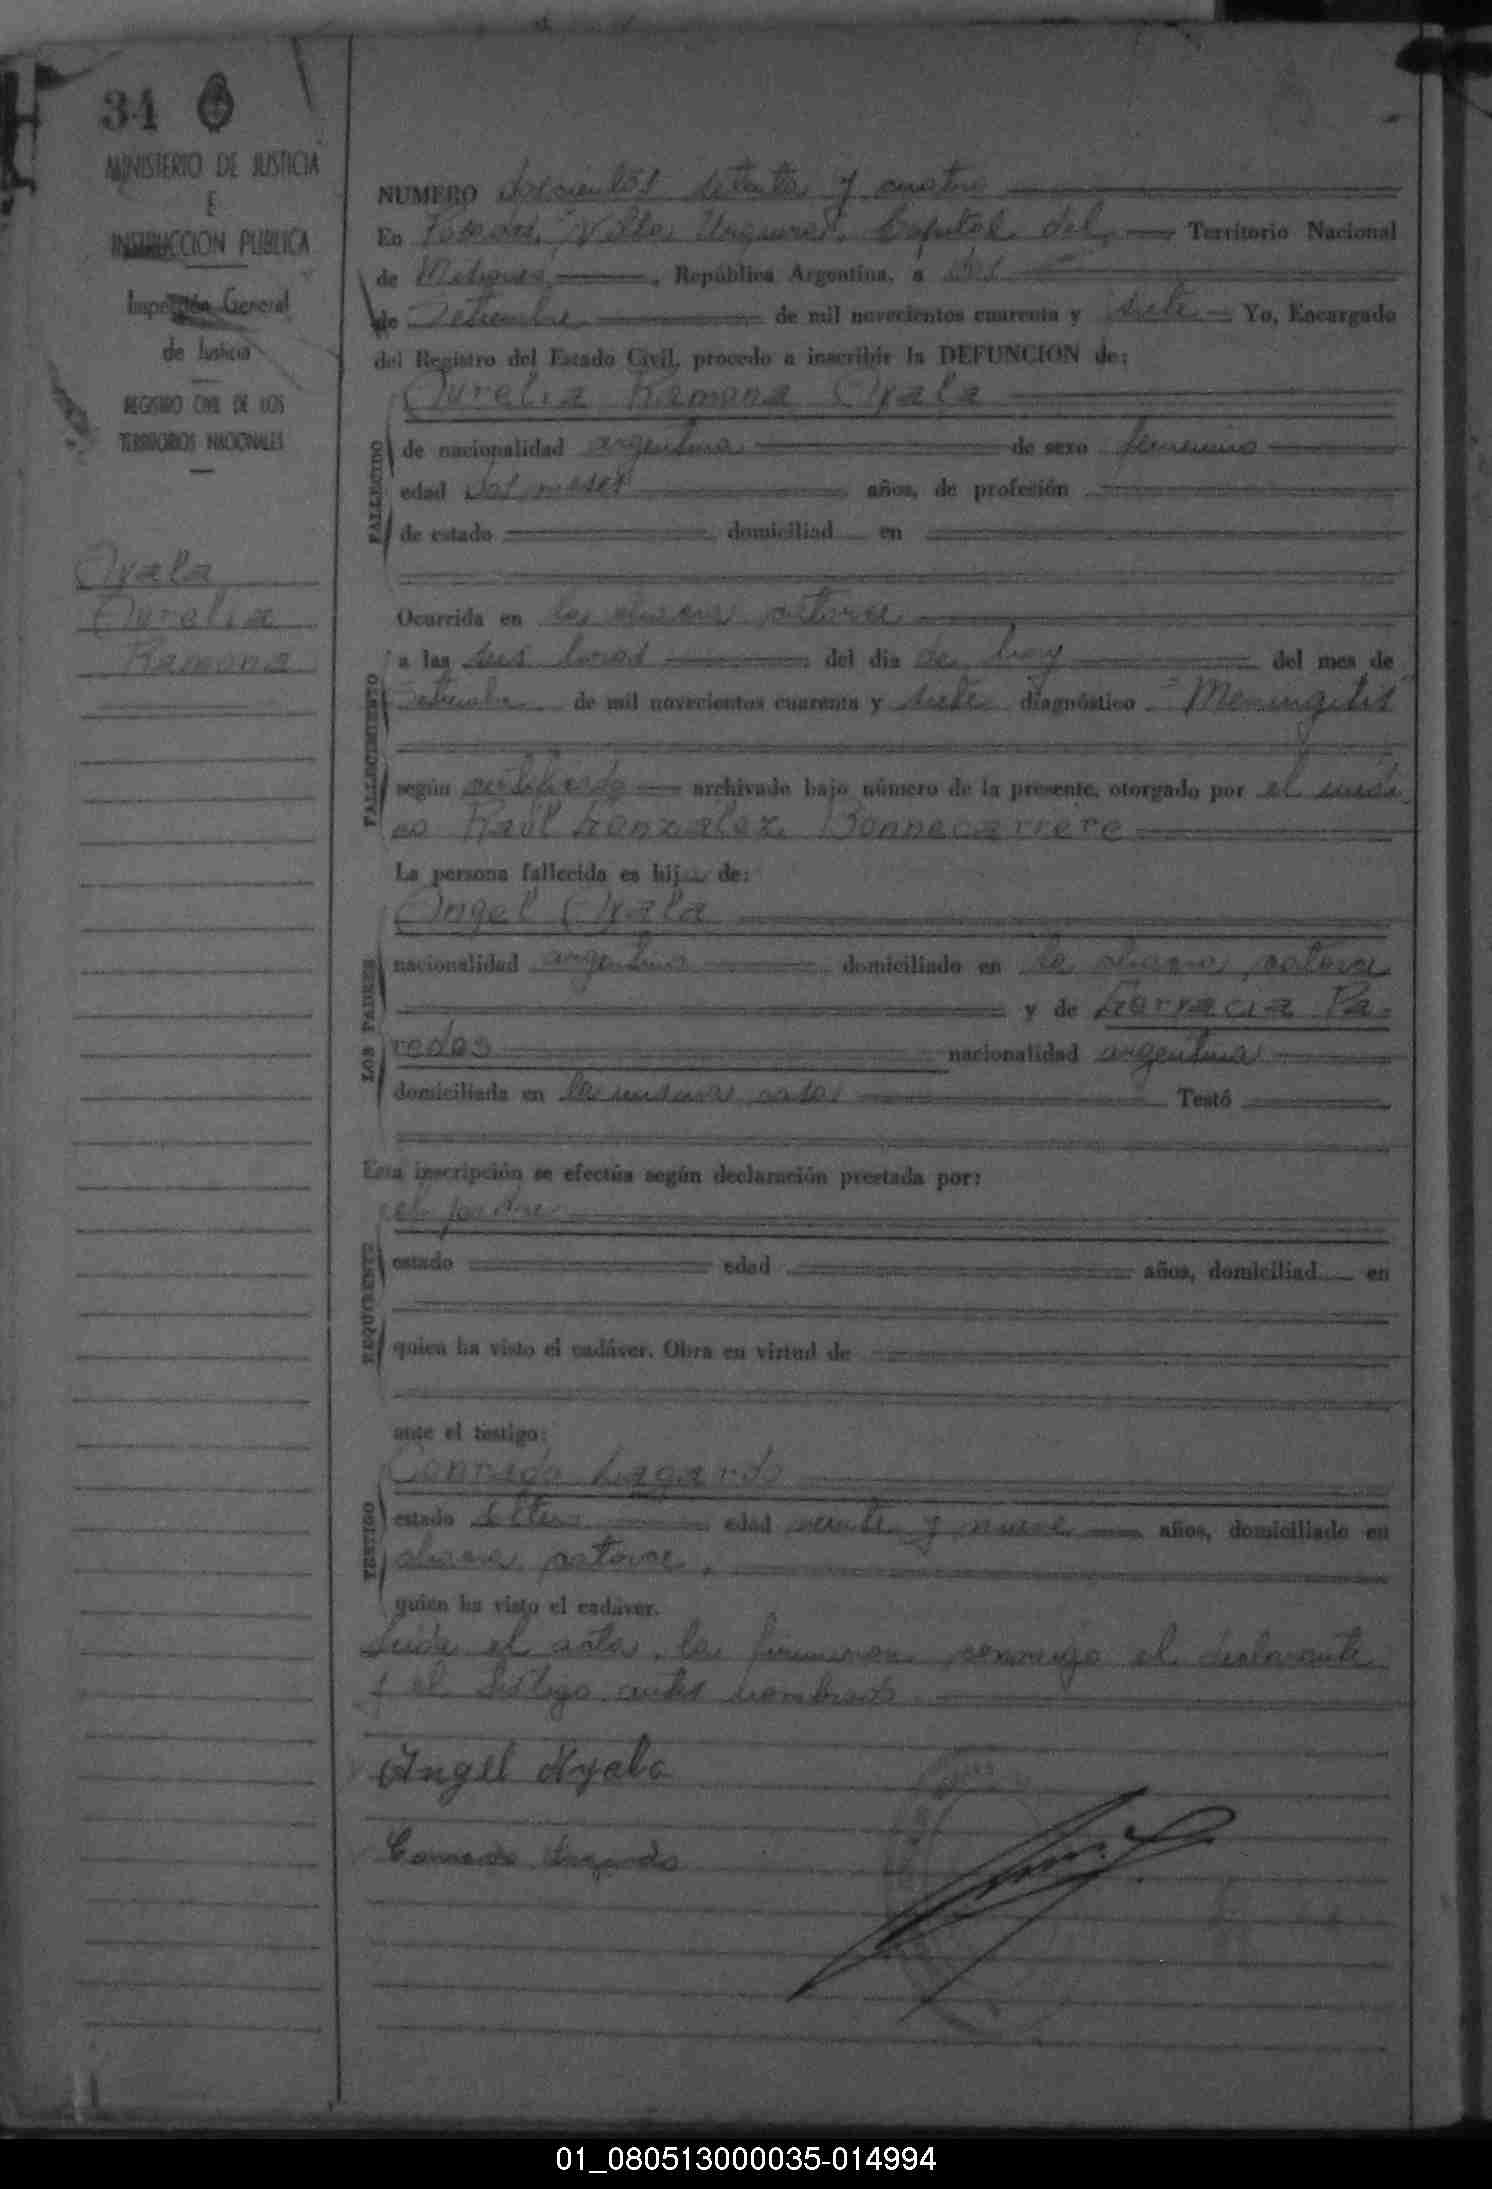 34
MINISTERIO DE JUSTICIA
E
INSTRUCCION PUBLICA
Inspección General
de Justicia
REGISTRO CIVIL DE LOS
TERRITORIOS NACIONALES
Ayala
Aurelia
Ramona
NUMERO doscientos setenta y cuatro
En Posadas, "Villa Urquiza", Capital del Territorio Nacional
de Misiones, República Argentina, a dos
de Setiembre de mil novecientos cuarenta y siete Yo, Encargado
del Registro del Estado Civil, procedo a inscribir la DEFUNCION de:
Aurelia Ramona Ayala
FALLECIDO
de nacionalidad argentina de sexo femenino
edad dos meses años, de profesión
de estado domiciliad en
FALLECIMIENTO
Ocurrida en la chacra catorce
a las seis horas del día de hoy del mes de
Setiembre de mil novecientos cuarenta y siete diagnóstico "Meningitis"
según certificado archivado bajo número de la presente, otorgado por el médi
co Raúl Gonzalez Bonnecarrere
LOS PADRES
La persona fallecida es hija de:
Angel Ayala
nacionalidad argentino domiciliado en la chacra catorce
y de Pa-
redes nacionalidad argentina
domiciliada en la misma casa Testó
REQUIRENTE
Esta inscripción se efectúa según declaración prestada por:
el padre
estado edad años, domiciliad en
quien ha visto el cadáver. Obra en virtud de
TESTIGO
ante el testigo:
Conrado Lagardo
estado soltero edad veinte y nueve años, domiciliado en
chacra catorce,
quien ha visto el cadáver.
Leída el acta, la firmaron conmigo el declarante
y el testigo antes nombrado
Angel Ayala
Conrado Lagardo
01_080513000035-014994